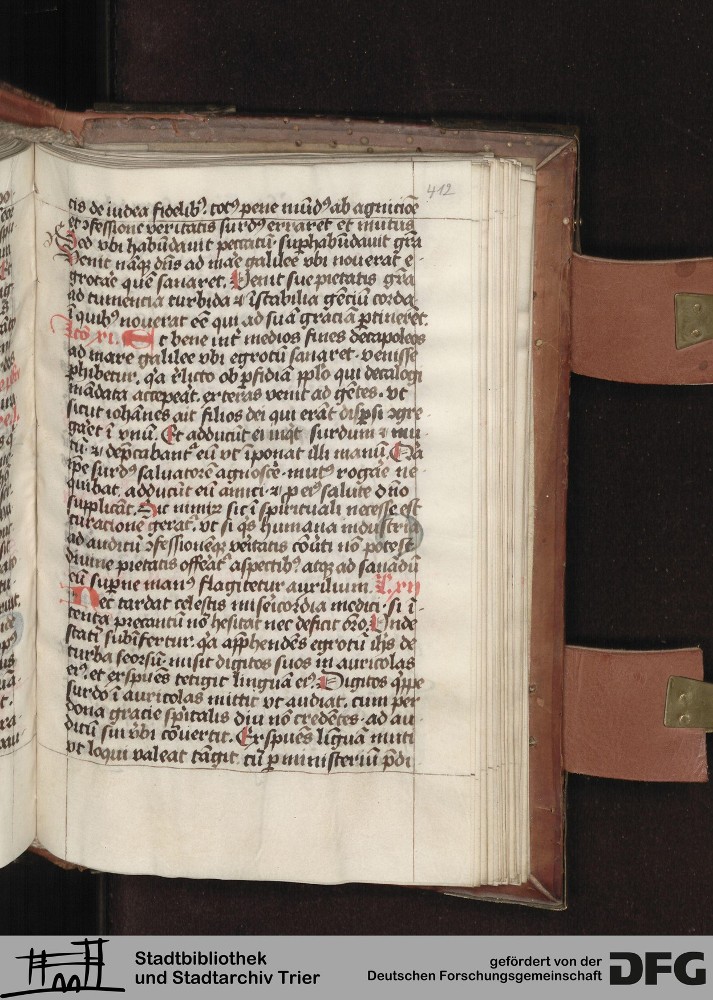 412
cis de iudea fidelibꝰ. totꝰ pene mūdꝰ ab agnicioē
et ↄfessione veritatis surdꝰ erraret et mutus
Sed vbi habūdauit peccatū suphabūdauit gr̄a
Venit nāqꝫ dn̄s ad mae galilee vbi nouerat e-
grotāc quē sanaret. Venit sue pietatis gr̄a
ad tumentia turbida ⁊ īstabilia gēciū corda.
ī quibꝰ nouerat eē qui ad suā graciā ꝑtineret.
lc̄o xi. Et bene int̄ medios fines decapoleos
ad mare galilee vbi egrotū sanaret. venisse
ꝑhibetur. qa r̄licto ob ꝑfidiā pplo qui decalogi
mādata acceꝑat. exteras venit ad gētes. vt
sicut iohānes ait filios dei qui erāt disꝑsi ↄgre-
gaēt ī vnū. Et adducūt ei inqt surdum ⁊ mu-
tū. ⁊ dep̄cabant eū vt īponat illi manū. Qa
ipe surdꝰ saluatorē agnoscē. mutꝰ rogāe ne-
quibat. adducūt eū amici. ⁊ ꝓ eiꝰ salute dn̄o
supplicāt. Sic nimiꝝ sic ī spirituali necesse est
curatione gerat. vt si qͥs humana industria
ad auditū ↄfessionēqꝫ veritatis cōuti nō potest
diuine pietatis offeat aspectibꝰ. atqꝫ ad sanādū
eū supne manꝰ flagitetur auxilium. L. xii
Nec tardat celestis misericordia medici. si ī-
tenta precantiū nō hesitat nec deficit oro. Vnde
statī subīfertur. qa apphendēs egrotū ih̄s de
turba seorsū. misit digitos suos in auricolas
eiꝰ. et exspuēs tetigit linguā eiꝰ. Digitos qppe
surdo ī auricolas mittit vt audiat. cum per
dona gracie sp̄italis diu nō credētes. ad au-
ditū sui vbi cōuertit. Exspuēs liguā muti
vt loqui valeat tāgit. cū ꝑ ministeriū p̄di
Stadtbibliothek
und Stadtarchiv Trier
gefördert von der
Deutschen Forschungsgemeinschaft
DFG